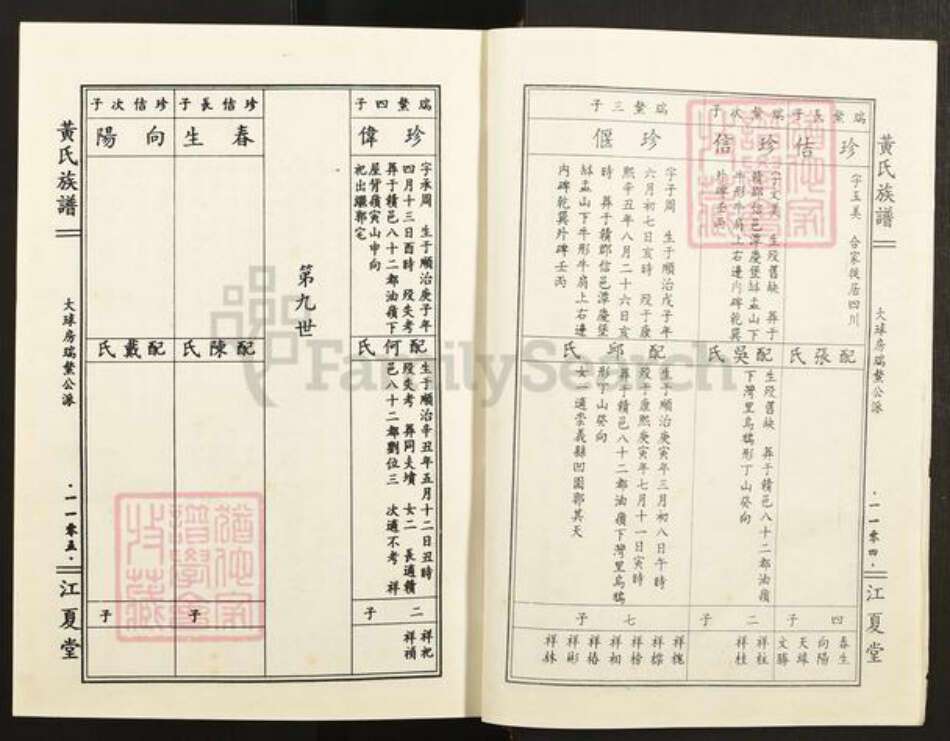 黃氏族譜
大球房瑞鰲公派
·一一零四·
江夏堂
瑞鰲長子
珍佶
字玉美 合家徙居四川
配張氏
四子
春生
向陽
天球
文勝
瑞鰲次子
珍信
字文美 生歿舊缺 葬于
贛郡信邑潭慶堡缽盂山下
牛形牛肩上右邊內碑乾巽
外碑壬丙
配吳氏
生歿舊缺 葬于贛邑八十二都油嶺
下灣里烏鴉形丁山癸向
二子
祥柱
祥桂
瑞鰲三子
珍偃
字子周 生于順治戊子年
六月初七日亥時 歿于康
熙辛丑年八月二十六日亥
時 葬于贛郡信邑潭慶堡
缽盂山下牛形牛肩上右邊
內碑乾巽外碑壬丙
配邱氏
生于順治庚寅年三月初八日午時
歿于康熙庚寅年七月十一日寅時
葬于贛邑八十二都油嶺下灣里烏鴉
形丁山癸向
女一適崇義縣凹圓郭其天
七子
祥槐
祥榜
祥椿
祥彬
祥林
瑞鰲四子
珍偉
字承周 生于順治庚子年
四月十三日酉時 歿失考
葬于贛邑八十二都油嶺下
屋背嶺寅山申向
祀出繼郭宅
配何氏
生于順治辛丑年五月十二日丑時
歿失考 葬同夫墳 女二 長適贛
邑八十二都劉位三 次適不考 祥
二子
祥祀
祥禎
第九世
珍佶長子
春生
配陳氏
子
珍佶次子
向陽
配戴氏
子
黃氏族譜
大球房瑞鰲公派
·一一零五·
江夏堂
FamilySearch